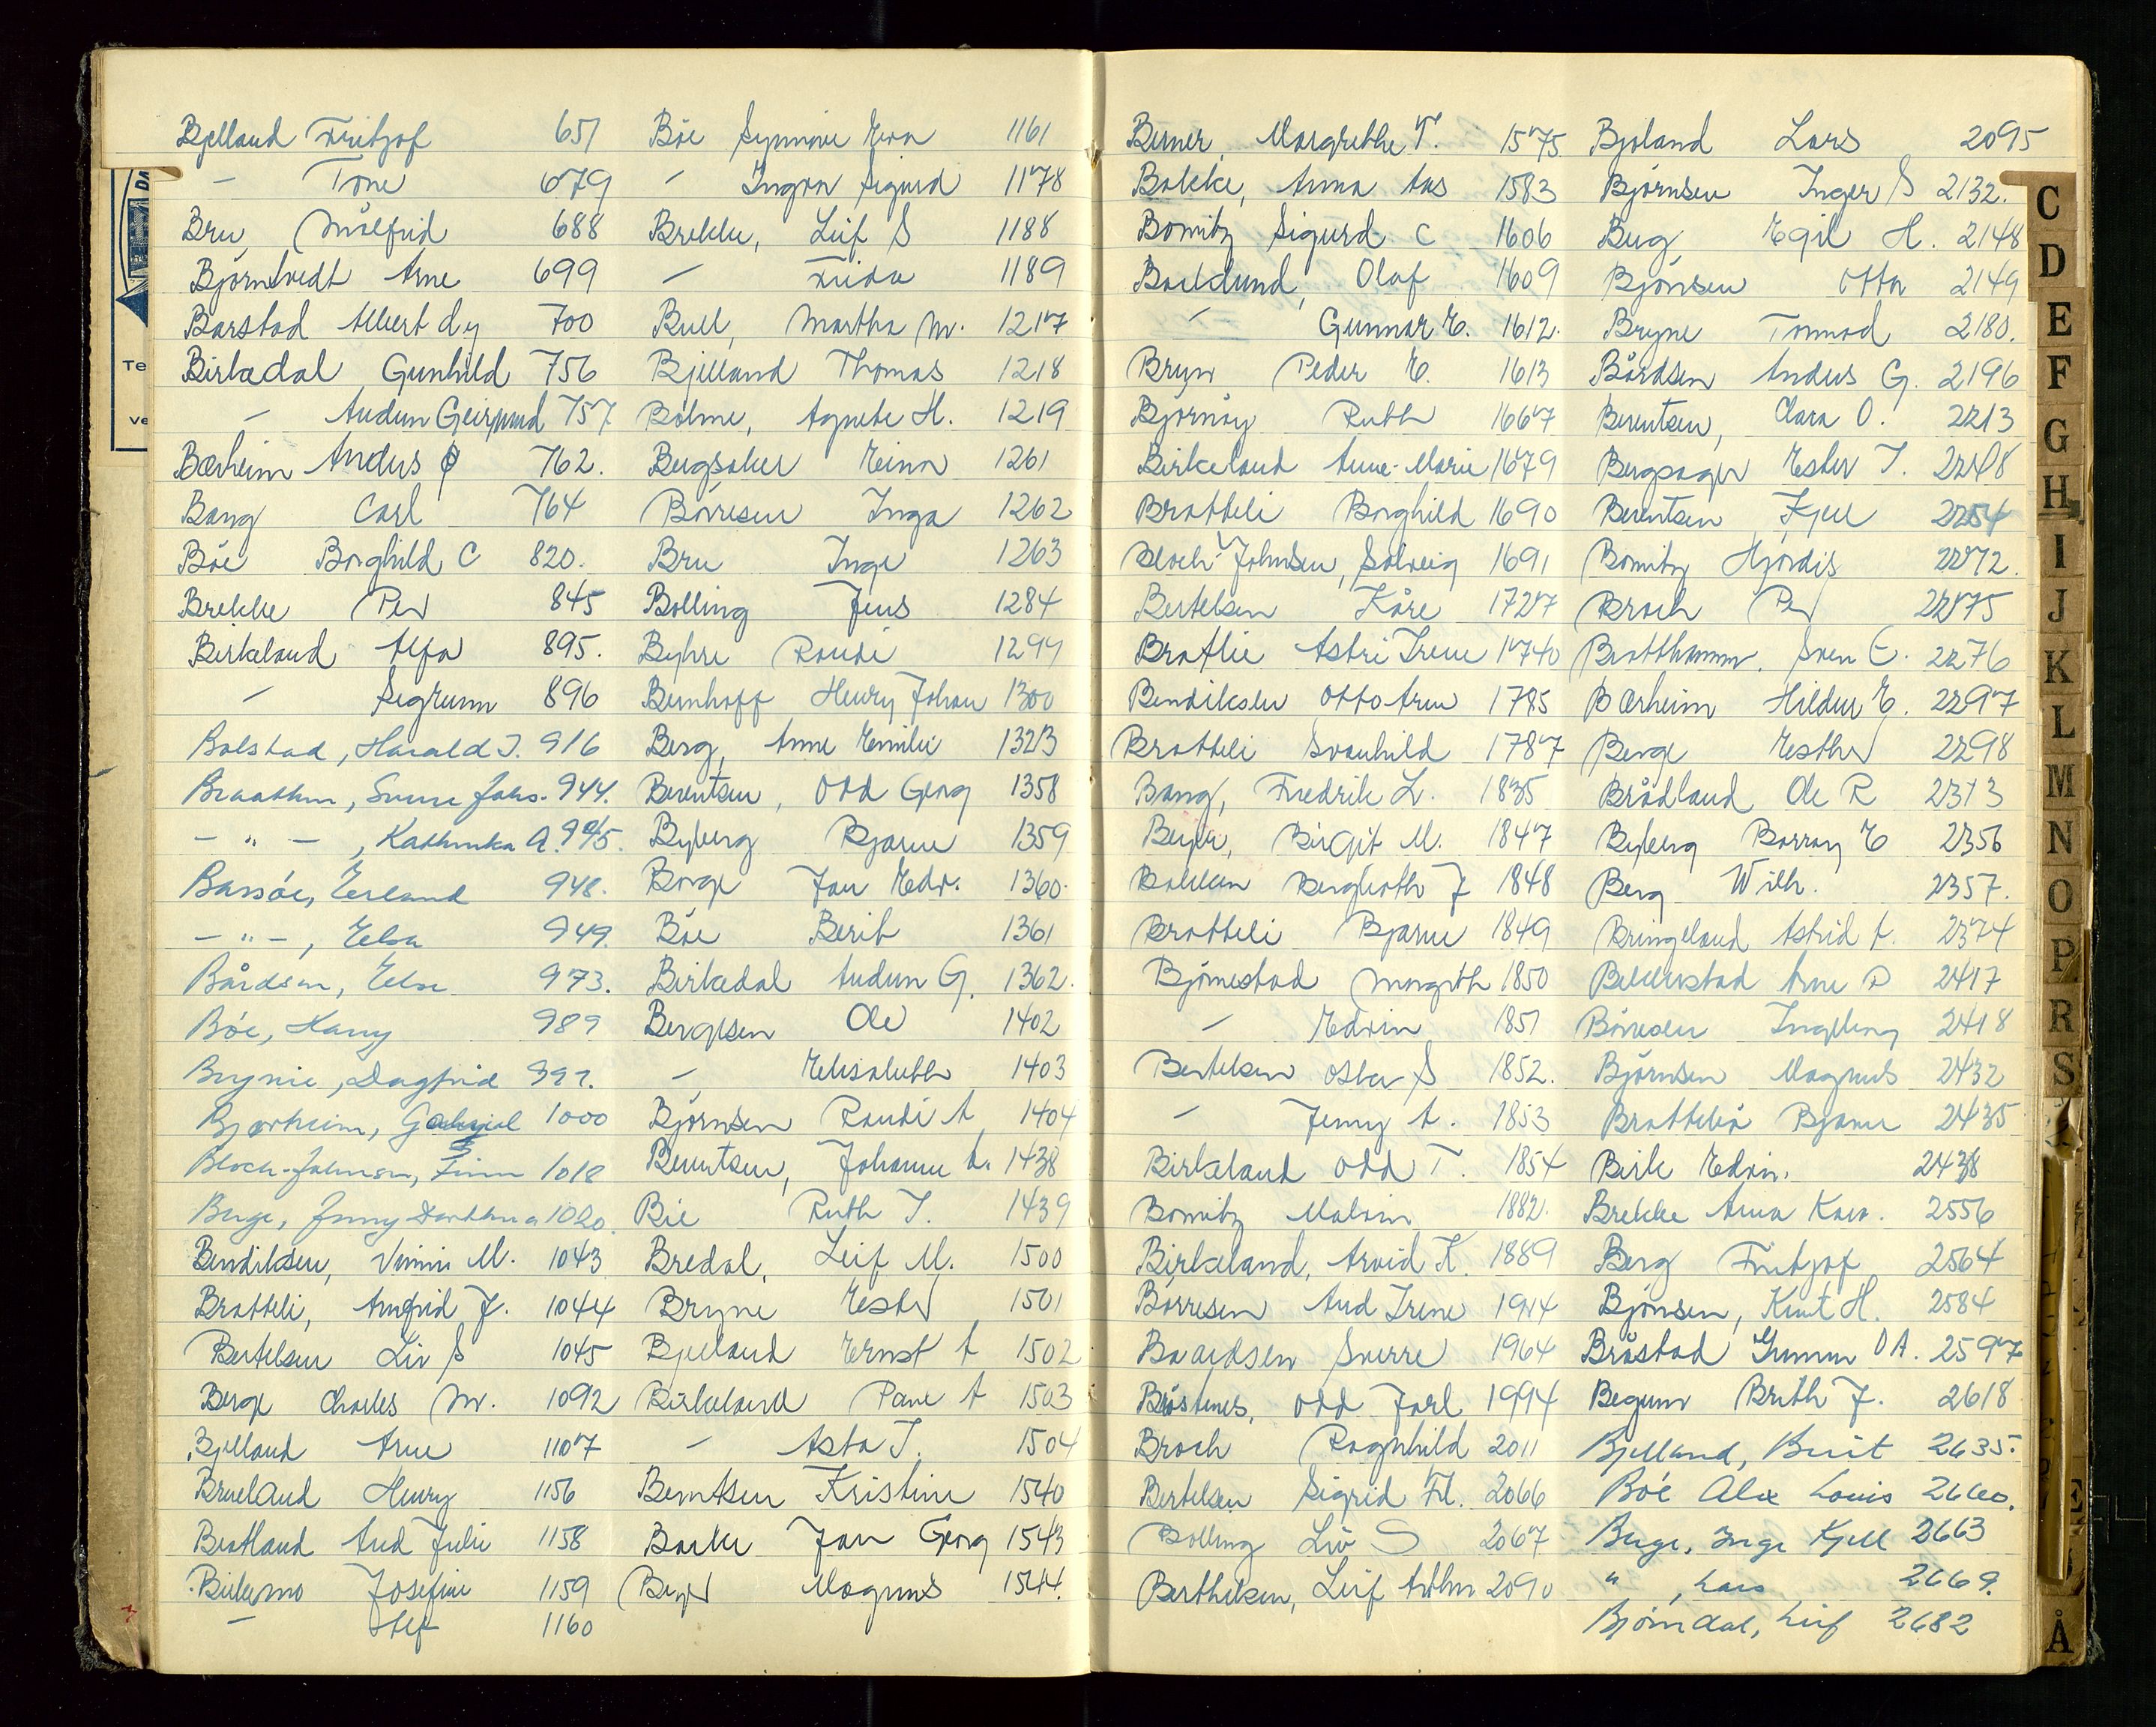 Bjelland Fritjof 651
- Tone 679
Bru, Målfrid 688
Bjørntvedt Arne 699
Barstad Albert dy 700
Birkedal Gunhild 756
- Audun Geirmund 757
Bærheim Anders Ø 762.
Bang Carl 764
Böe Borghild C 820.
Brekke Per 845
Birkeland Alfa 895.
- Sigrunn 896
Bolstad, Harald J. 916
Braathen, Sverre Johs. 944.
- " -, Kathinka A. 945.
Barsöe, Erland 948.
- " -, Elsa 949.
Bårdsen, Else 973.
Böe, Harry 989
Brynie, Dagfrid 997.
Bjerheim, Gabriel 1000
Bloch-Johnsen, Finn 1018
Berge, Jenny Dorthea 1020.
Bendiksen, Vinni M. 1043
Bratteli, Arnfrid J. 1044
Bertelsen Liv S 1045
Berge Charles M. 1092
Bjelland Arne 1107
Brueland Henry 1156
Bratland Aud Julie 1158
Birkemo Josefine 1159
- Alf 1160
Böe Synnöve Eva 1161
- Ingvar Sigurd 1178
Brekke, Leif S 1188
- Frida 1189
Bull, Martha M. 1217
Bjelland Thomas 1218
Bolme, Agnete H. 1219
Bergsaker Einar 1261
Börresen Inga 1262
Bru Inge 1263
Bolling Jens 1284
Byhre Randi 1299
Bernhoff Henry Johan 1300
Berg, Anne Emilie 1323
Berentsen, Odd Georg 1358
Byberg Bjarne 1359
Borge Jan Edv. 1360.
Böe Berit 1361
Birkedal Audun G. 1362.
Bergesen Ole 1402
- Elisabeth 1403
Björnsen Randi A 1404
Berentsen, Johanne A. 1438
Bie Ruth J. 1439
Bredal, Leif M. 1500
Bryne Ester 1501
Bjelland Ernst A 1502
Birkeland Pane A 1503
- Asta J. 1504
Berntsen Kristine 1540
Barke Jan Georg 1543
Beyer Magnus 1544.
Berner, Margrethe T. 1575
Bakke, Anna Aas 1583
Bomitz Sigurd C 1606
Backlund, Olaf 1609
- Gunnar E. 1612.
Bryn Peder E. 1613
Björnöy Ruth 1667
Birkeland Anne-Marie 1679
Bratteli Borghild 1690
Bloch-Johnsen, Solveig 1691
Bertelsen Kåre 1727
Bratlie Astri Irene 1740
Bendiksen Otto Arne 1785
Bratteli Svanhild 1787
Bang, Fredrik L. 1835
Beyer, Birgit M. 1847
Bakken Bergljoth J 1848
Bratteli Bjarne 1849
Björnestad Margith 1850
- Edvin 1851
Bertelsen Oskar S 1852.
- Jenny A. 1853
Birkeland Odd T. 1854
Bomitz Malvin 1882.
Birkeland, Arvid K. 1889
Börresen Aud Irene 1914
Baardsen Sverre 1964
Bröstenes, Odd Jarl 1994
Broch Ragnhild 2011
Bertelsen Sigrid Fl. 2066
Bolling Liv S 2067
Berthelsen, Leif Arthur 2090
Bjoland Lars 2095
Björnsen Inger S 2132.
Berg, Egil H. 2148
Björnsen Otto 2149
Bryne Tormod 2180.
Bårdsen Anders G. 2196
Berentsen, Clara O. 2213
Bergsager Ester J. 2248
Berentsen Kjell 2254
Bomitz Hjördis 2272.
Broch Per 2275
Bratthammer. Sven E. 2276
Bærheim Hildur E. 2297
Berge Esther 2298
Brådland Ole R 2313
Byberg Borray E 2356
Berg Wilh. 2357.
Bringeland Astrid A. 2374
Bekkerstad Arne P 2417
Börresen Ingeborg 2418
Björnsen Magnus 2432
Bratteliö Bjarne 2435
Birk Edvin. 2438
Brekke Anna Kasp. 2556
Berg Fritjof 2564
Björnsen, Knut H. 2584
Bråstad Gunnar O A. 2597
Begum Brith J. 2618
Bjelland, Berit 2635.
Böe Alex Louis 2660.
Berge, Inge Kjell 2663
" , Lars 2669.
Bjørndal, Leif 2682
C
D
E
F
G
H
I
J
K
L
M
N
O
P
R
S
Å
DA
Te
ve